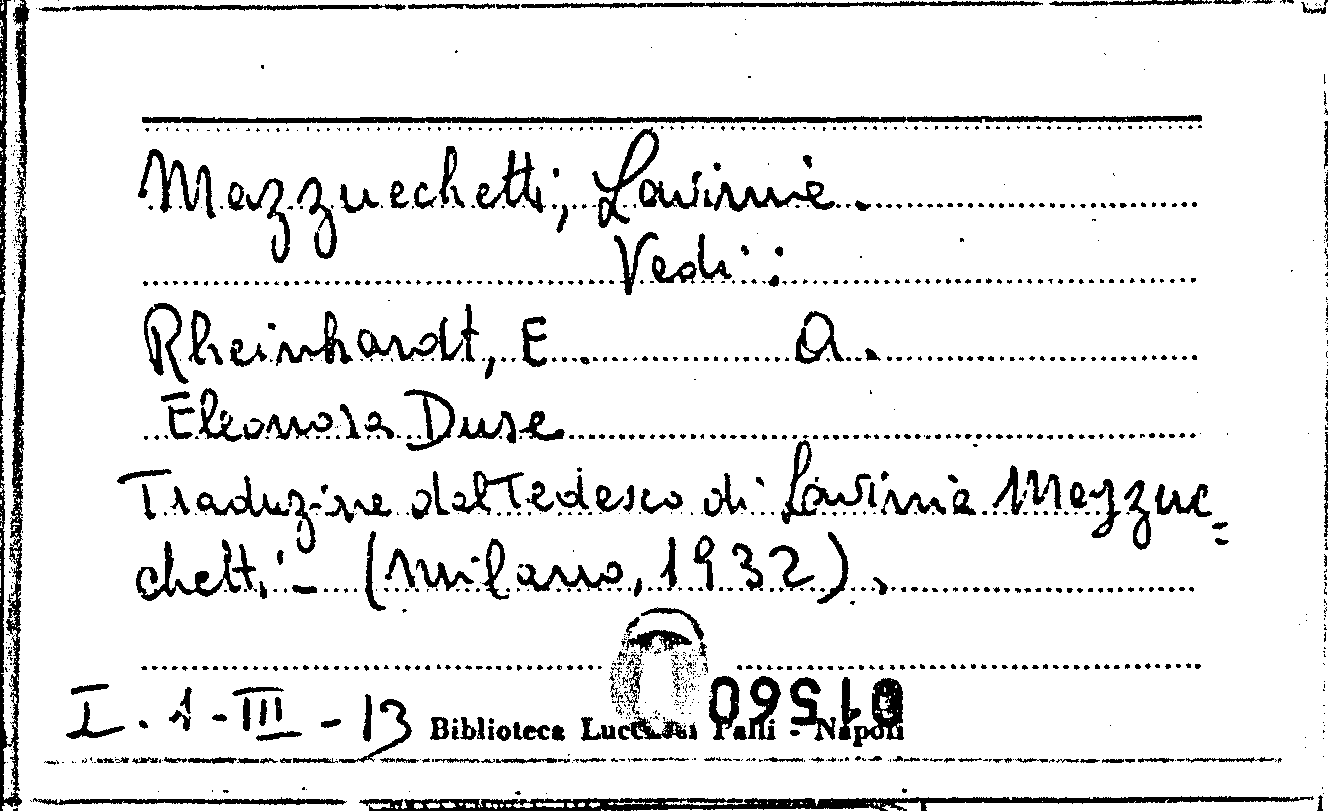 Mazzucchetti, Lavinia.
Vedi:
Rheinhardt, E. A.
Eleonora Duse
Traduzione dal Tedesco di Lavinia Mazzuc=
chetti - (Milano, 1932).
I. 1 - III - 13 Biblioteca Lucchesi Palli - Napoli